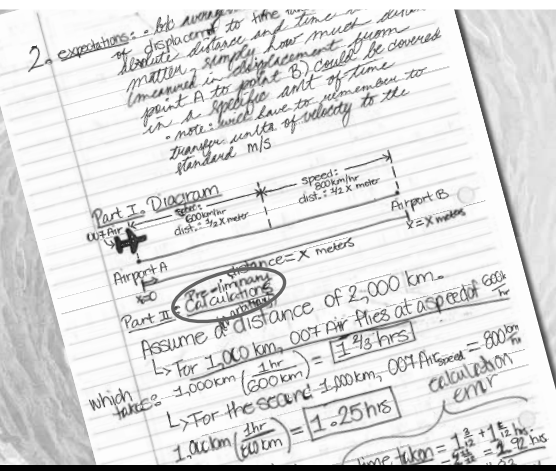 2. expectations: · bk average
of displacement to time
absolute distance and time
matter, simply how much
(measured in displacement from
point A to point B) could be covered
in a specific amt of time
· note: will have to remember to
transfer units of velocity to the
standard m/s
Part I. Diagram
007 Air
speed:
600km/hr
dist.: 1/2 X meter
speed:
800km/hr
dist.: 1/2 X meter
Airport A
x=0
Airport B
x=X meters
distance = X meters
Part II. Preliminary
Calculations
Assume a distance of 2,000 km.
↳ For 1,000 km, 007 Air flies at a speed of 600k/hr
which
takes: 1,000km (1hr/600km) = 1 2/3 hrs
↳ For the second 1,000km, 007 Air speed = 800km/hr
1,000km (1hr/ km) = 1.25 hrs
calculation
error
time taken =
2.92 hrs